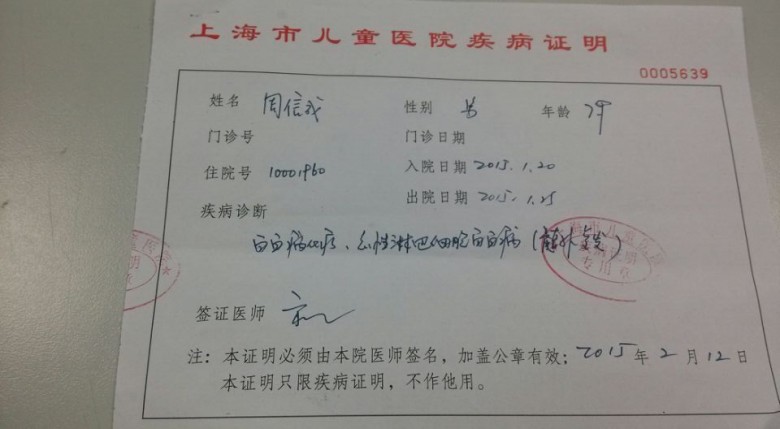 上海市儿童医院疾病证明
0005639
姓名 周信我 性别 男 年龄 7岁
门诊号 门诊日期
住院号 10001960 入院日期 2015.1.20
出院日期 2015.1.25
疾病诊断
白血病化疗、急性淋巴细胞白血病(髓外复发)
市儿童医院
疾病证明
专用章
签证医师
注:本证明必须由本院医师签名,加盖公章有效;2015年2月12日
本证明只限疾病证明,不作他用。